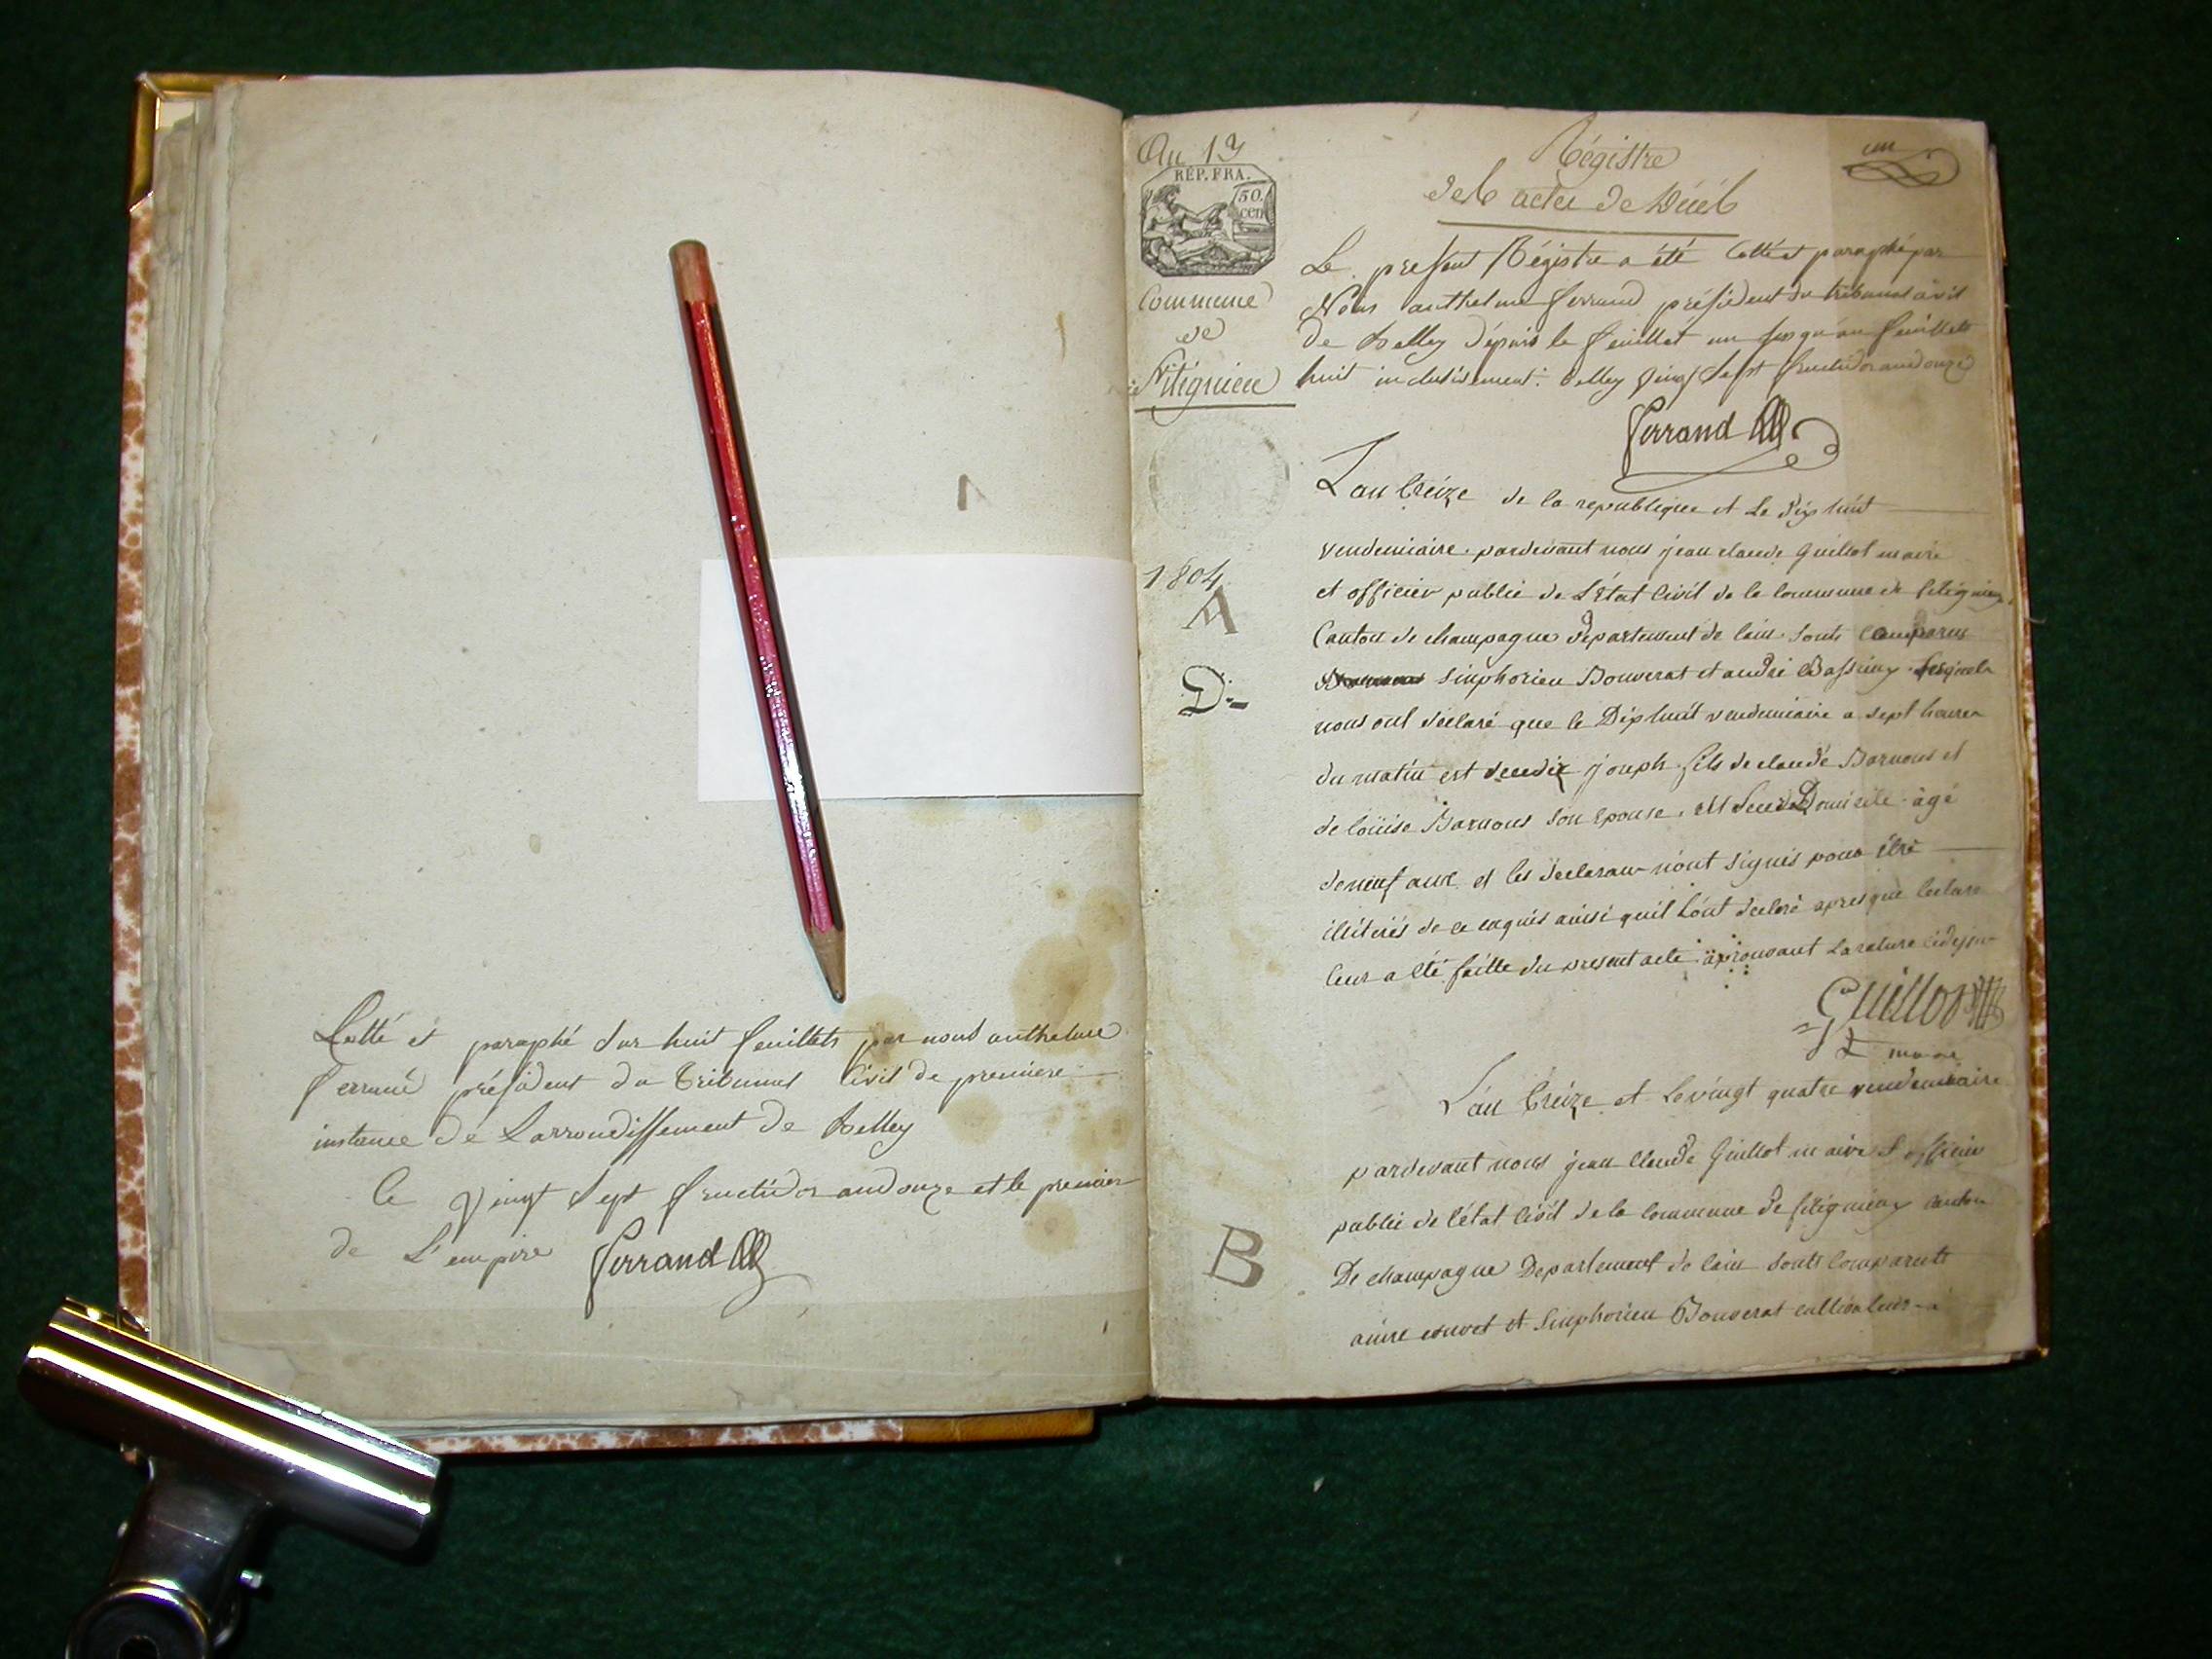 Cotté et paraphé sur huit feuillets par nous anthelme
ferrand président du tribunal Civil de première
instance de Larrondissement de Belley
Ce vingt Sept fructidor an douze et le premier
de L'empire ferrand
An 13
REP. FRA.
50.
cen
Commune
de
Sitignieu
1804
A
D
B
un
Régistre
des actes de Décés
Le present Régistre a été Cotté et paraphé par
Nous anthelme ferrand président du tribunal civil
de Belley dépuis le feuillet un jusqu'au feuillet
huit inclusivement. Belley vingt Sept fructidor an douze
ferrand
L'an treize de la republique et le dix huit
vendemiaire pardevant nous jean claude guillot maire
et officier public de L'état Civil de la commune de sitignieu
Canton de champagne departement de lain sonts comparus
sinphorien Bouverat et andré lesquels
nous ont declaré que le Dix huit vendemiaire a sept heures
du matin est decedé joseph fils de claude Barnous et
de loüise Barnous son epouse, Domicile agé
de neuf ans et les declarans n'ont signés pour être
illiterés de ce enquis ainsi quil l'ont declaré apres que lecture
leur a été faitte du present acte aprouvant la rature
Guillot
maire
L'an treize et le vingt quatre vendemiaire
pardevant nous jean Claude Guillot maire officier
public de l'état Civil de la commune de sitignieux canton
De champagne Departement de lain sonts comparuts
et sinphorien Bouverat cultivateurs a